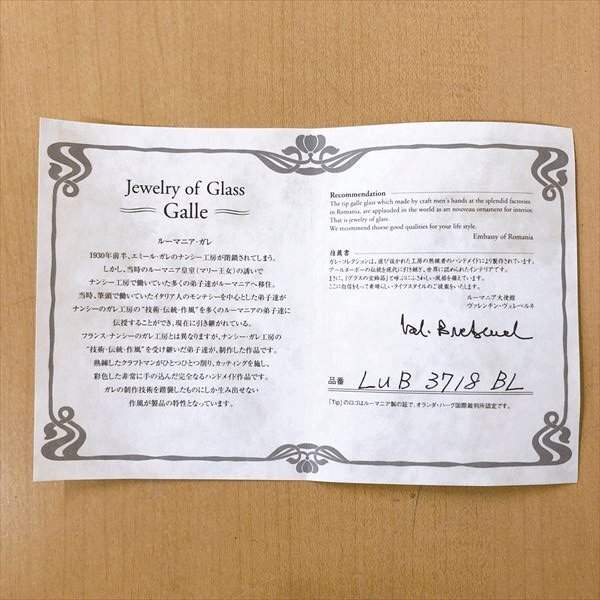 Jewelry of Glass
Galle
ルーマニア・ガレ
1930年前半、エミール・ガレのナンシー工房が閉鎖されてしまう。
しかし、当時のルーマニア皇室（マリー王女）の誘いで
ナンシー工房で働いていた多くの弟子達がルーマニアへ移住。
当時、筆頭で働いていたイタリア人のモンテシーを中心とした弟子達が
ナンシーのガレ工房の“技術・伝統・作風”を多くのルーマニアの弟子達に
伝授することができ、現在に引き継がれている。
フランス・ナンシーのガレ工房とは異なりますが、ナンシー・ガレ工房の
“技術・伝統・作風”を受け継いだ弟子達が、制作した作品です。
熟練したクラフトマンがひとつひとつ削り、カッティングを施し、
彩色した非常に手の込んだ完全なるハンドメイド作品です。
ガレの制作技術を踏襲したものにしか生み出せない
作風が製品の特性となっています。
Recommendation
The tip galle glass which made by craft men's hands at the splendid factories
in Romania, are applauded in the world as art nouveau ornament for interior.
That is jewelry of glass.
We recommend thoese good qualities for your life style.
Embassy of Romania
推薦書
ガレ・コレクションは、選び抜かれた工房の熟練者のハンドメイドにより製作されています。
アールヌーボーの伝統を現代に引き継ぎ、世界に認められたインテリアです。
まさに、「グラスの宝飾品」と呼ぶにふさわしい風格を備えています。
ここに自信をもって素晴しいライフスタイルのご提案をいたします。
ルーマニア大使館
ヴァレンチン・ヴェレベルネ
品番 LUB 3718 BL
「Tip」のロゴはルーマニア製の証で、オランダ・ハーグ国際裁判所認定です。